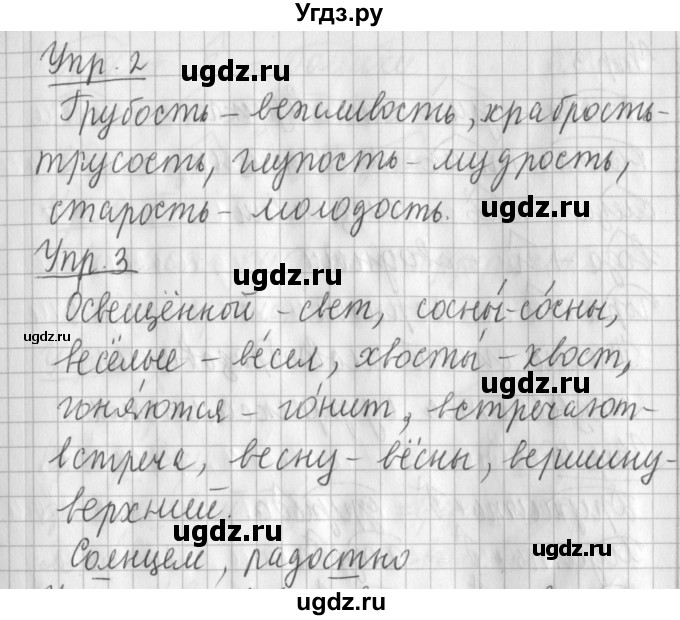 Угдз.ру
Упр. 2
ugdz.ru
Грубость - вежливость, храбрость-
трусость, глупость - мудрость,
ugdz.ru
старость - молодость.
Упр. 3
ugdz.ru
Освещённой - свет, сосны́-со́сны,
ugdz.ru
весёлые - ве́сел, хвосты́ - хвост,
ugdz.ru
гоня́ются - го́нит, встречают-
встреча, весну - вёсны, вершину-
верхний.
ugdz.ru
Солнцем, радостно
ugdz.ru
ugdz.ru